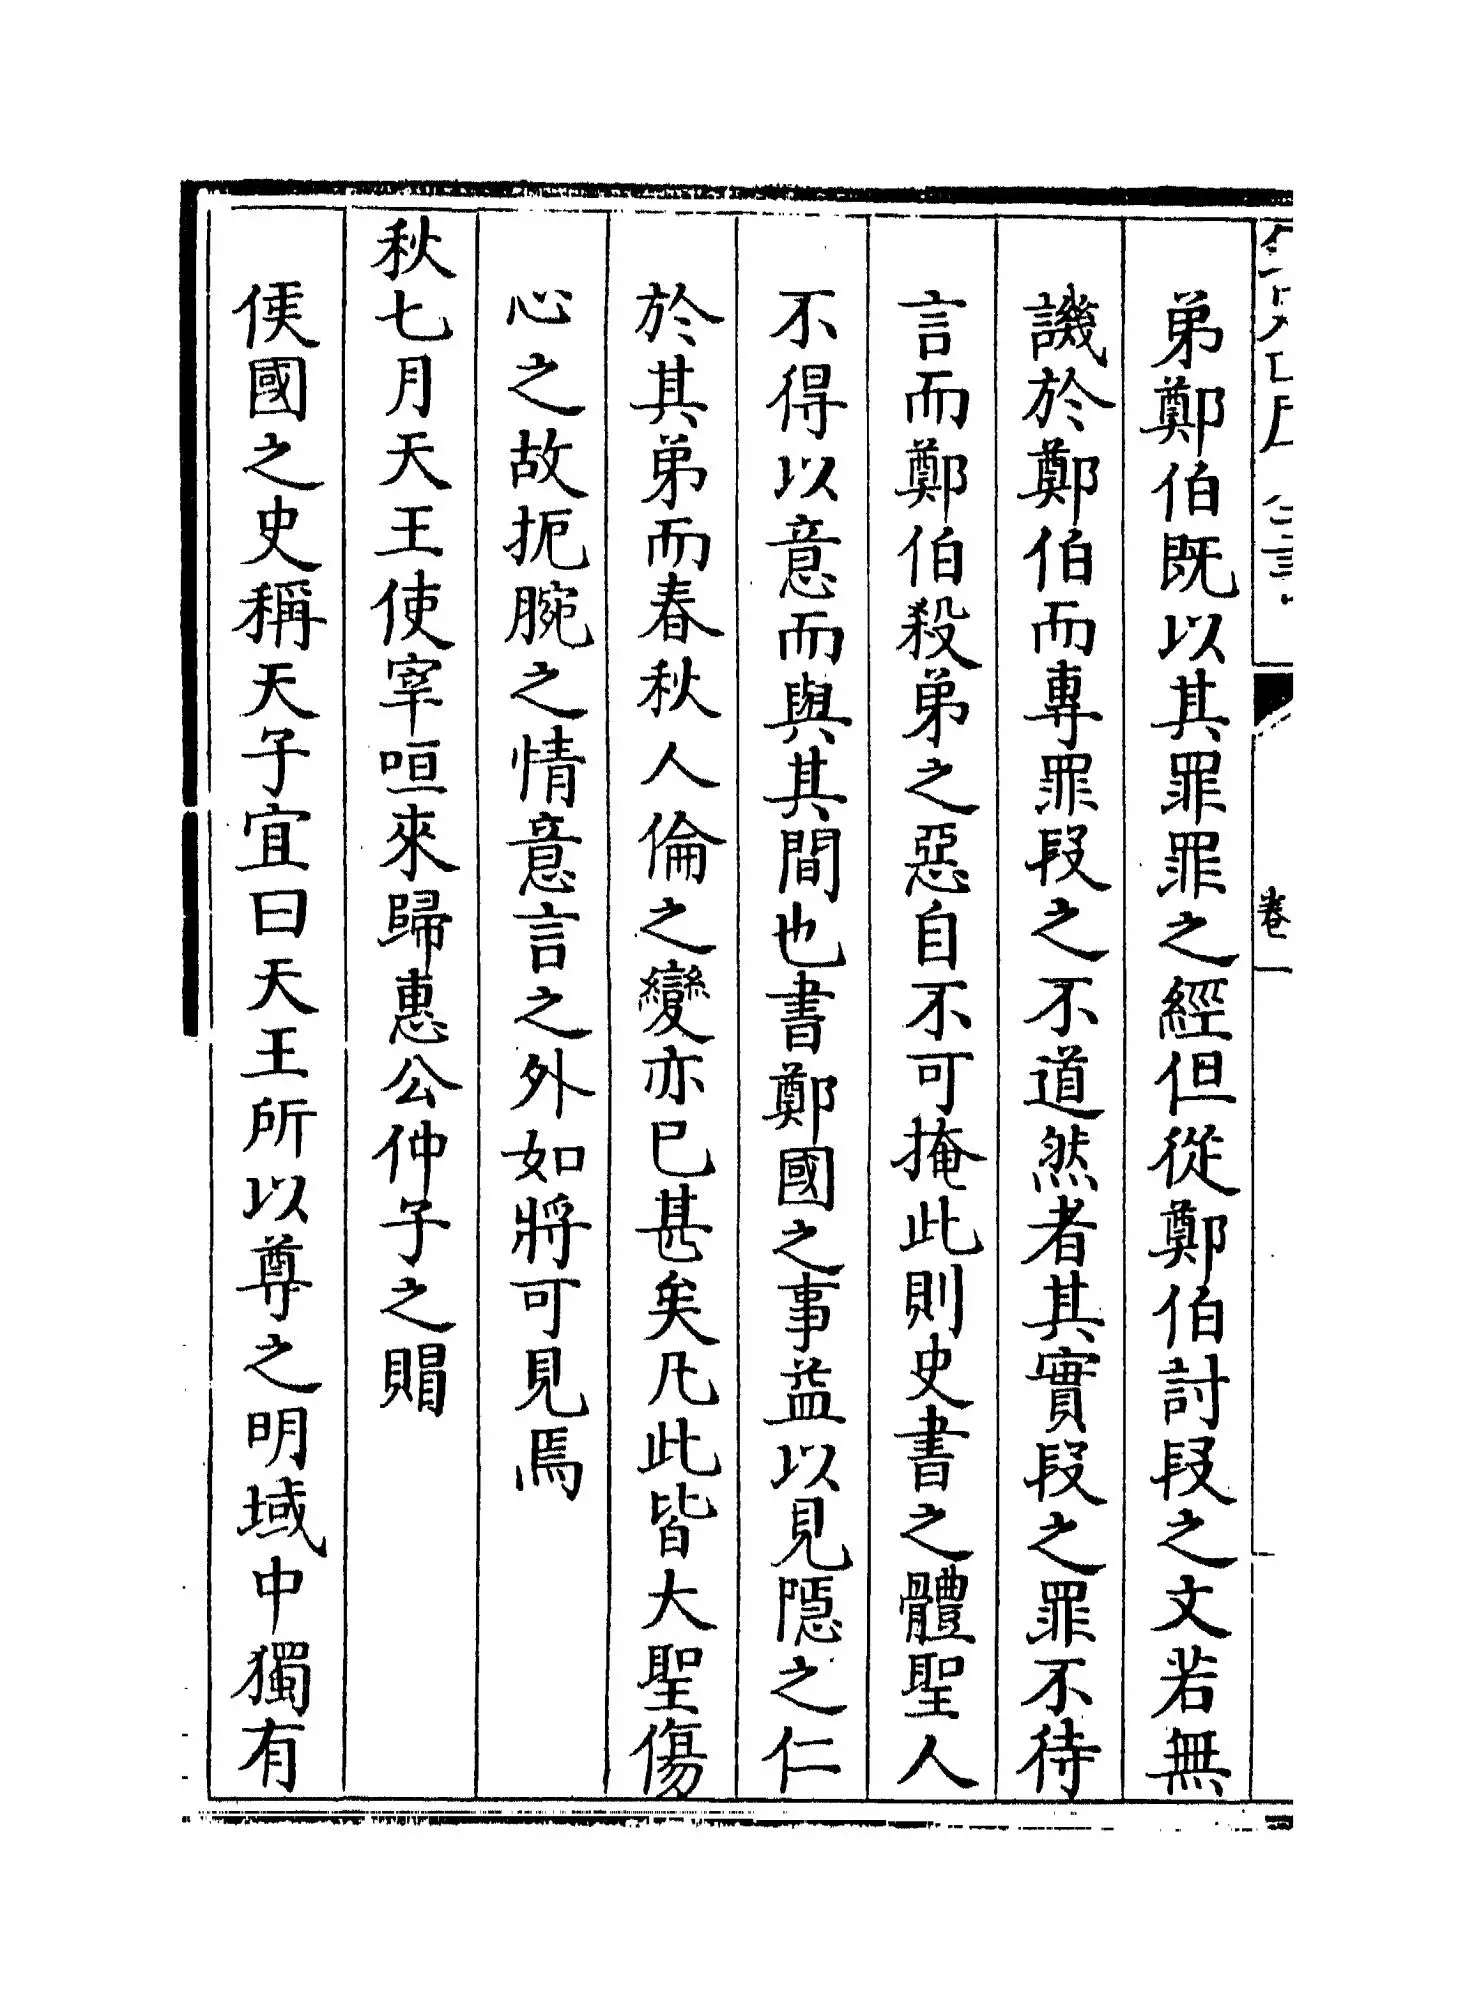 弟鄭伯既以其罪罪之經但從鄭伯討段之文若無
譏於鄭伯而專罪段之不道然者其實段之罪不待
言而鄭伯殺弟之惡自不可掩此則史書之體聖人
不得以意而與其間也書鄭國之事益以見隱之仁
於其弟而春秋人倫之變亦已甚矣凡此皆大聖傷
心之故扼腕之情意言之外如將可見焉
秋七月天王使宰咺來歸惠公仲子之賵
侯國之史稱天子宜曰天王所以尊之明域中獨有
卷一